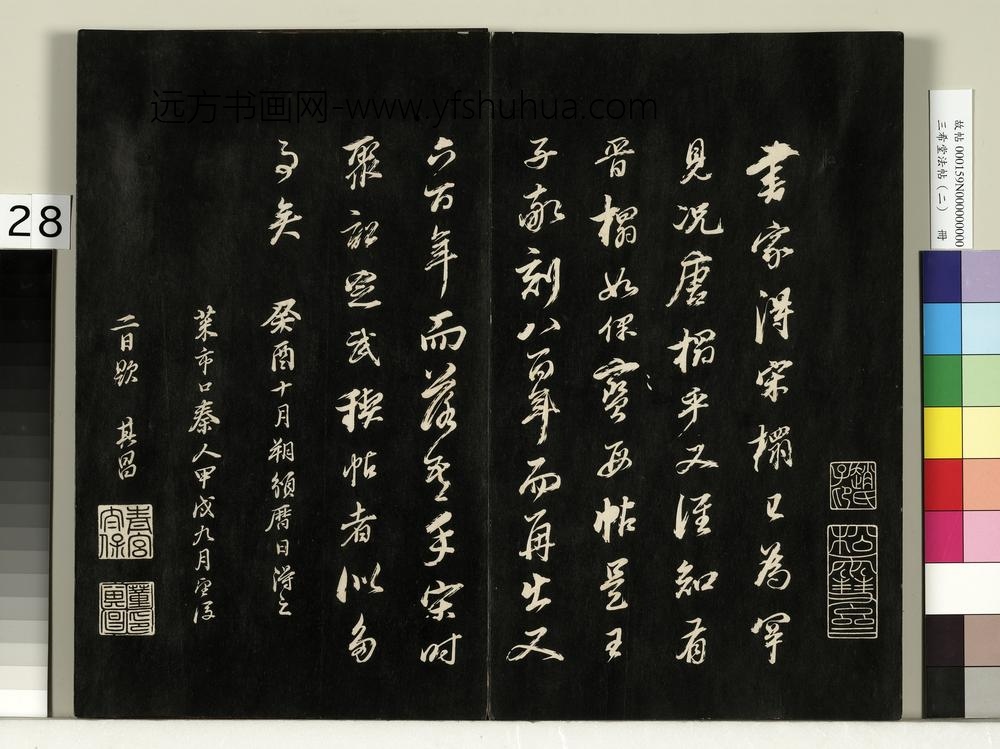 远方书画网-www.yfshuhua.com
故帖 000159N000000000
三希堂法帖（二） 冊
28
書家得宋榻已為罕
見況唐榻乎又誰知有
晉榻如保母帖是王
子敬刻八百年而再出又
六百年而落吾手宋時
聚訟定武稧帖者似多
事矣 癸酉十月朔頒曆日得之
菜市口秦人甲戌九月望後
二日題 其昌